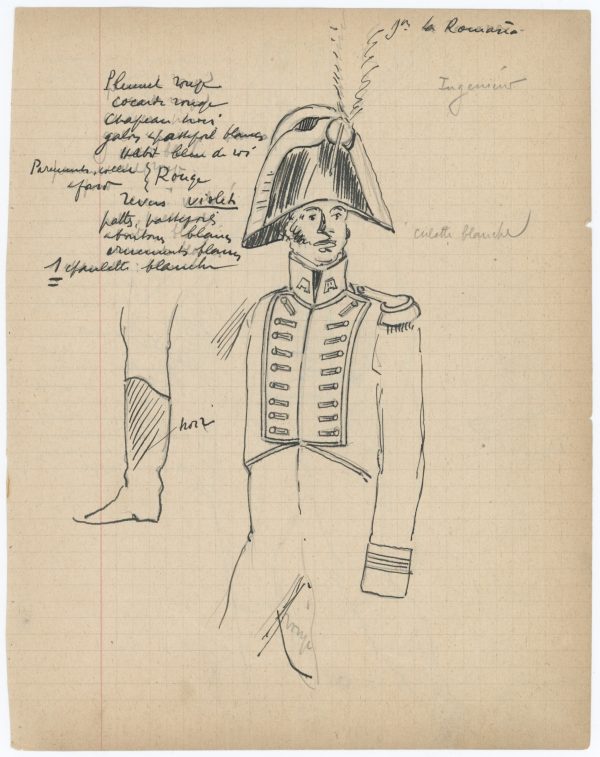 la Romaña
Ingenieur
Plumet rouge
cocarde rouge
chapeau noir
galon passepoil blancs
habit bleu de roi
Parements, collet
Rouge
revers violets
pattes, passepoils
boutons blancs
ornements blancs
1 épaulette blanche
culotte blanche
noir
rouge